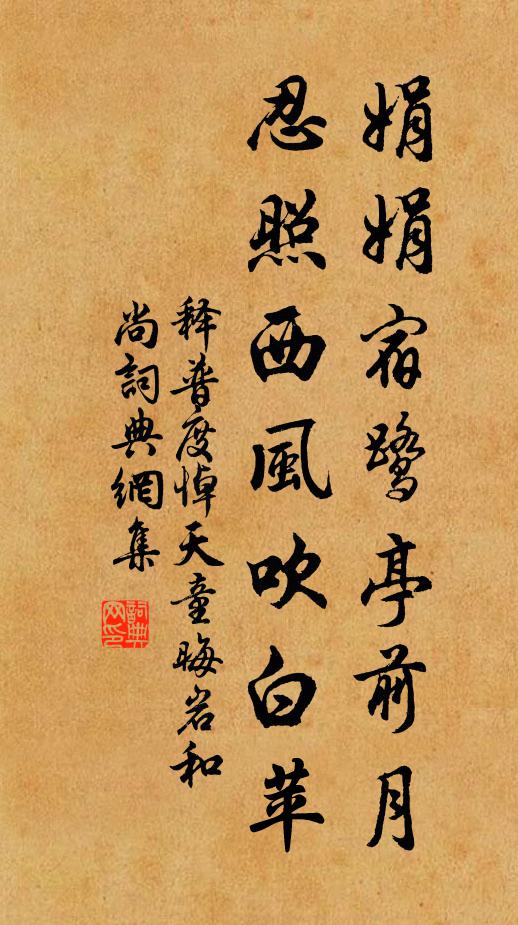 娟娟宿鹭亭前月
忍照西風吹白苹
释普度悼天童晦岩和
尚詞典網集
詞典网印